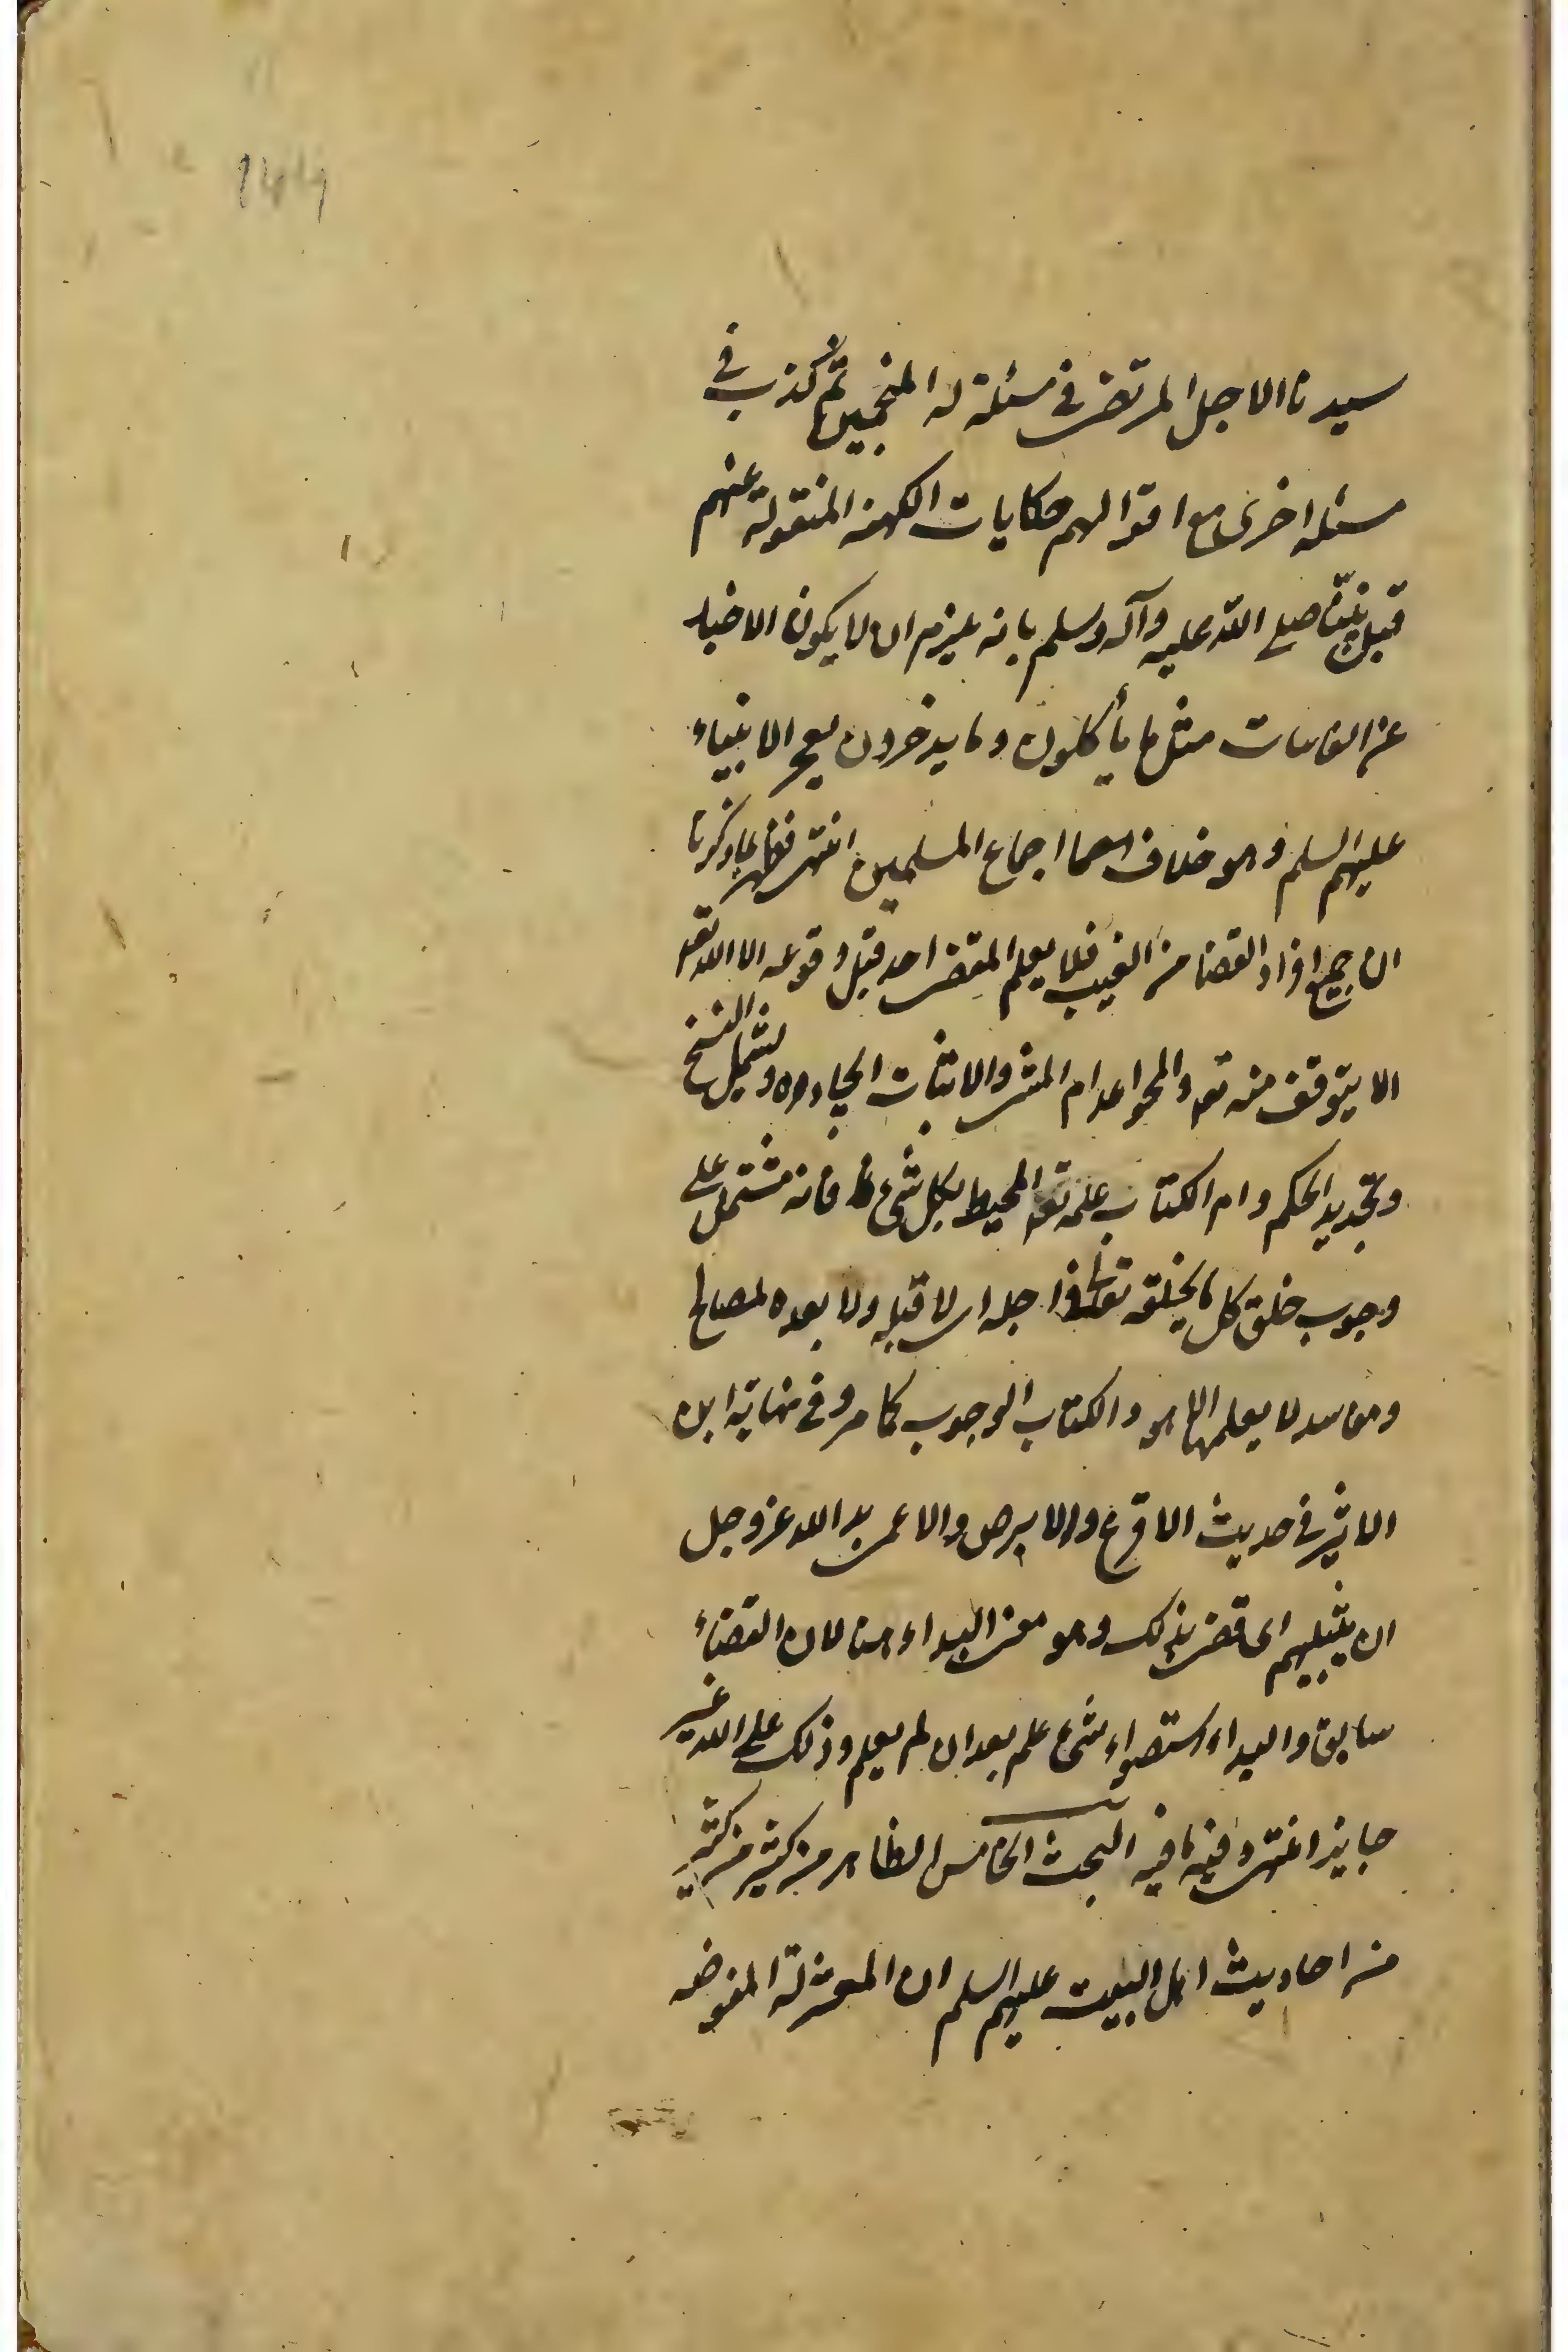 سيدنا الاجل المرتضى فى مسئلة له المنجمين ثم كذب فى
مسئله اخرى مع اقوالهم حكايات الكهنه المنقولة عنهم
قبل نبينا صلى الله عليه وآله وسلم بانه يلزم ان لا يكون الاخبار
عن الغائبات مثل ما يأكلون وما يدخرون معجز الانبياء
عليهم السلم وهو خلاف اجماع المسلمين انتهى فظهر بما ذكرنا
ان جميع افراد القضا من الغيب فلا يعلم المقضى احد قبل وقوعه الا الله تعه
الا بتوقف منه تعه والمحو اعدام المثبت والاثبات ايجاده ويشمل النسخ
وتجديد الحكم وام الكتاب علمه تعه المحيط بكل شىء فانه مشتمل على
وجوب خلق كل ما يخلقه تعالى فى اجله اى لا قبله ولا بعده لمصالح
ومفاسد لا يعلمها الا هو والكتاب الوجوب كما مر وفى نهاية ابن
الاثير فى حديث الاقرع والابرص والاعمى بدا لله عز وجل
ان يبتليهم اى قضى بذلك وهو معنى البداء هنا لان القضاء
سابق والبداء استصواب شىء علم بعد ان لم يعلم وذلك على الله غير
جايز انتهى وفيه ما فيه البحث الخامس الظاهر من كثير من كثير
من احاديث اهل البيت عليهم السلم ان المعتزلة المفوضه